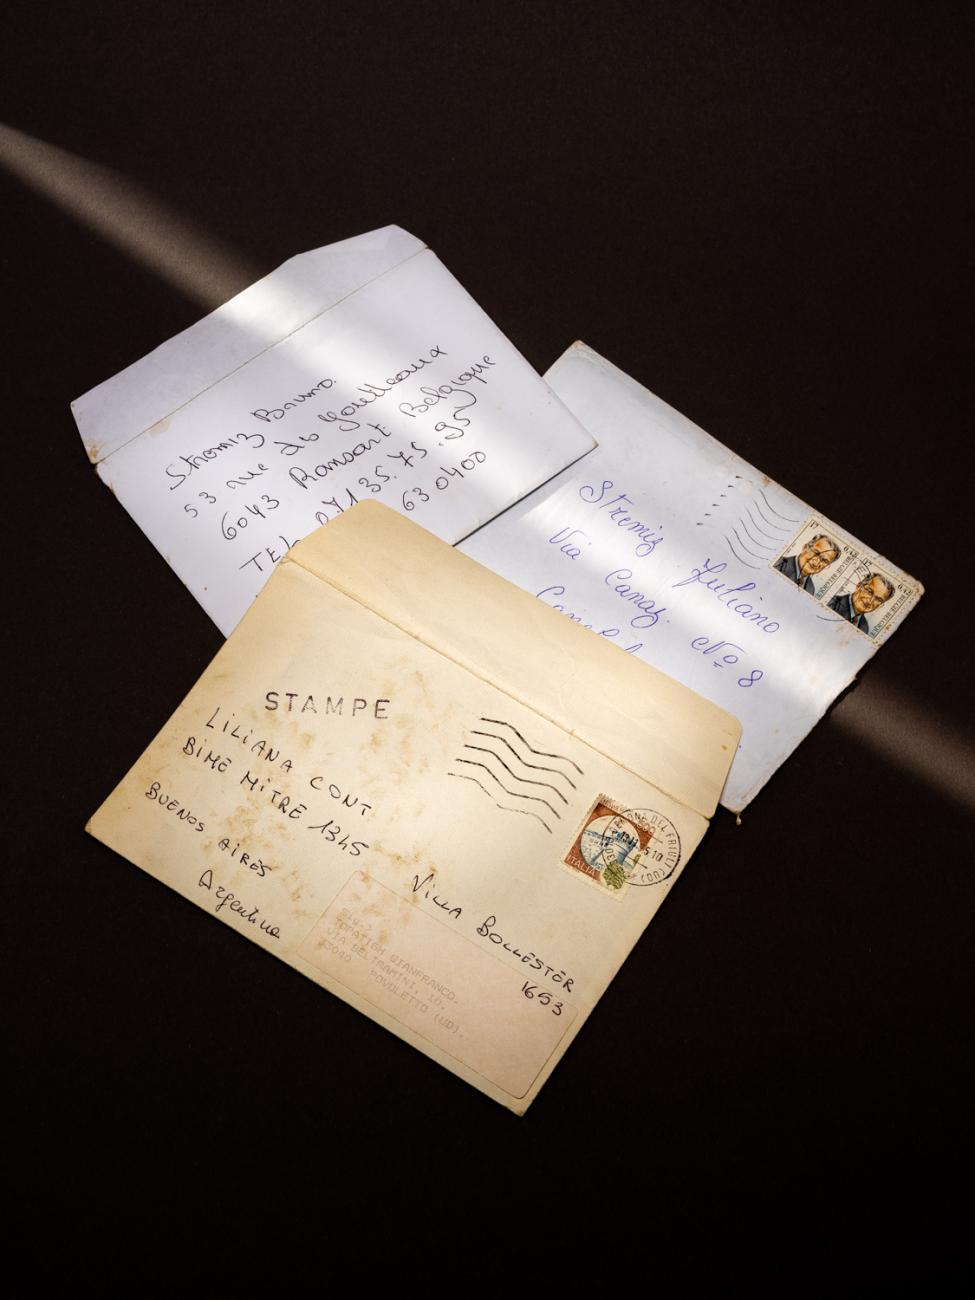 Stremiz Bruno.
53 rue de
6043 Ransart Belgique
TEL 071 35.75.95
63 0400
Stremiz Juliano
Via Canaz. No 8
17 0,42
17 0,42
STAMPE
LILIANA CONT
BIMÉ MITRE 1345
BUENOS AIRES
Argentina
VILLA BOLLESTER
1653
ITALIA
DEL FRIULI
(UD)
GIANFRANCO.
VIA BELTRAMINI, 10.
33040 POVOLETTO (UD).